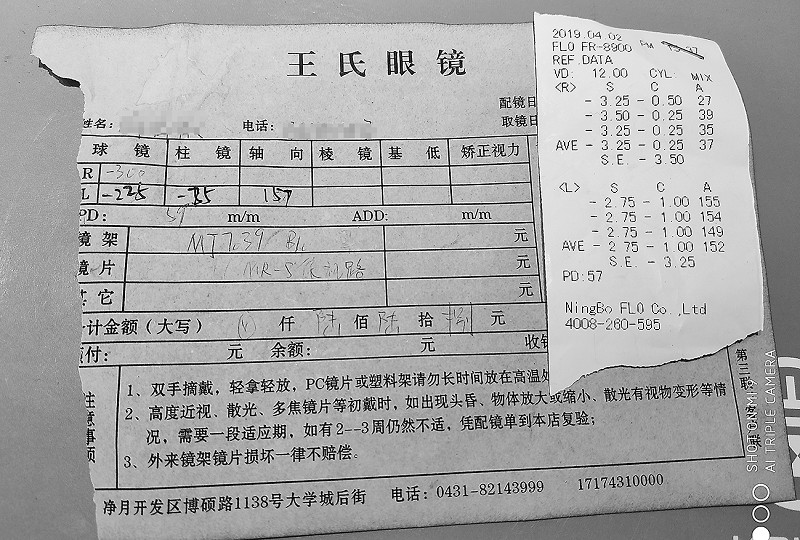 王氏眼镜
配镜日
姓名: 电话: 取镜日
球 镜 柱 镜 轴 向 棱 镜 基 低 矫正视力
R -300
L -225 157
PD: 59 m/m ADD: m/m
镜 架 元
镜 片 元
其 它 元
计金额(大写) 仟 陆 佰 陆 拾 捌 元
付: 元 余额: 元 收银
注意事项
1、双手摘戴,轻拿轻放,PC镜片或塑料架请勿长时间放在高温处
2、高度近视、散光、多焦镜片等初戴时,如出现头昏、物体放大或缩小、散光有视物变形等情
况,需要一段适应期,如有2--3周仍然不适,凭配镜单到本店复验;
3、外来镜架镜片损坏一律不赔偿。
净月开发区博硕路1138号大学城后街 电话:0431-82143999 17174310000
第三联 客 联
2019.04.02 PM 13:37
FLO FR-8900
REF.DATA
VD: 12.00 CYL: MIX
<R> S C A
- 3.25 - 0.50 27
- 3.50 - 0.25 39
- 3.25 - 0.25 35
AVE - 3.25 - 0.25 37
S.E. - 3.50
<L> S C A
- 2.75 - 1.00 155
- 2.75 - 1.00 154
- 2.75 - 1.00 149
AVE - 2.75 - 1.00 152
S.E. - 3.25
PD:57
NingBo FLO Co.,Ltd
4008-260-595
SHOT ON MI 9
AI TRIPLE CAMERA